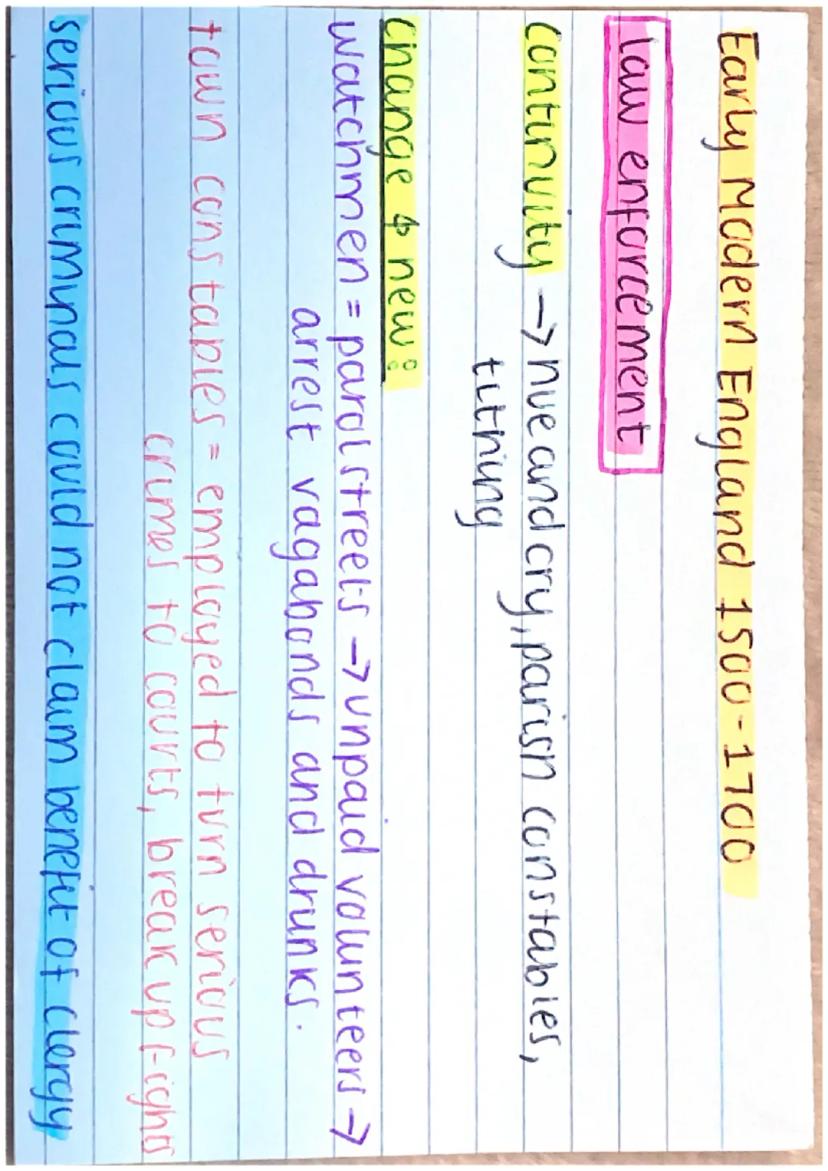 Early Modern England 1500-1700
law enforcement
continuity → hue and cry, parish constables,
tithing
change & new:
watchmen = parol streets → unpaid volunteers →
arrest vagabonds and drunks.
town constables = employed to turn serious
crimes to courts, break up fights
serious criminals could not claim benefit of clergy